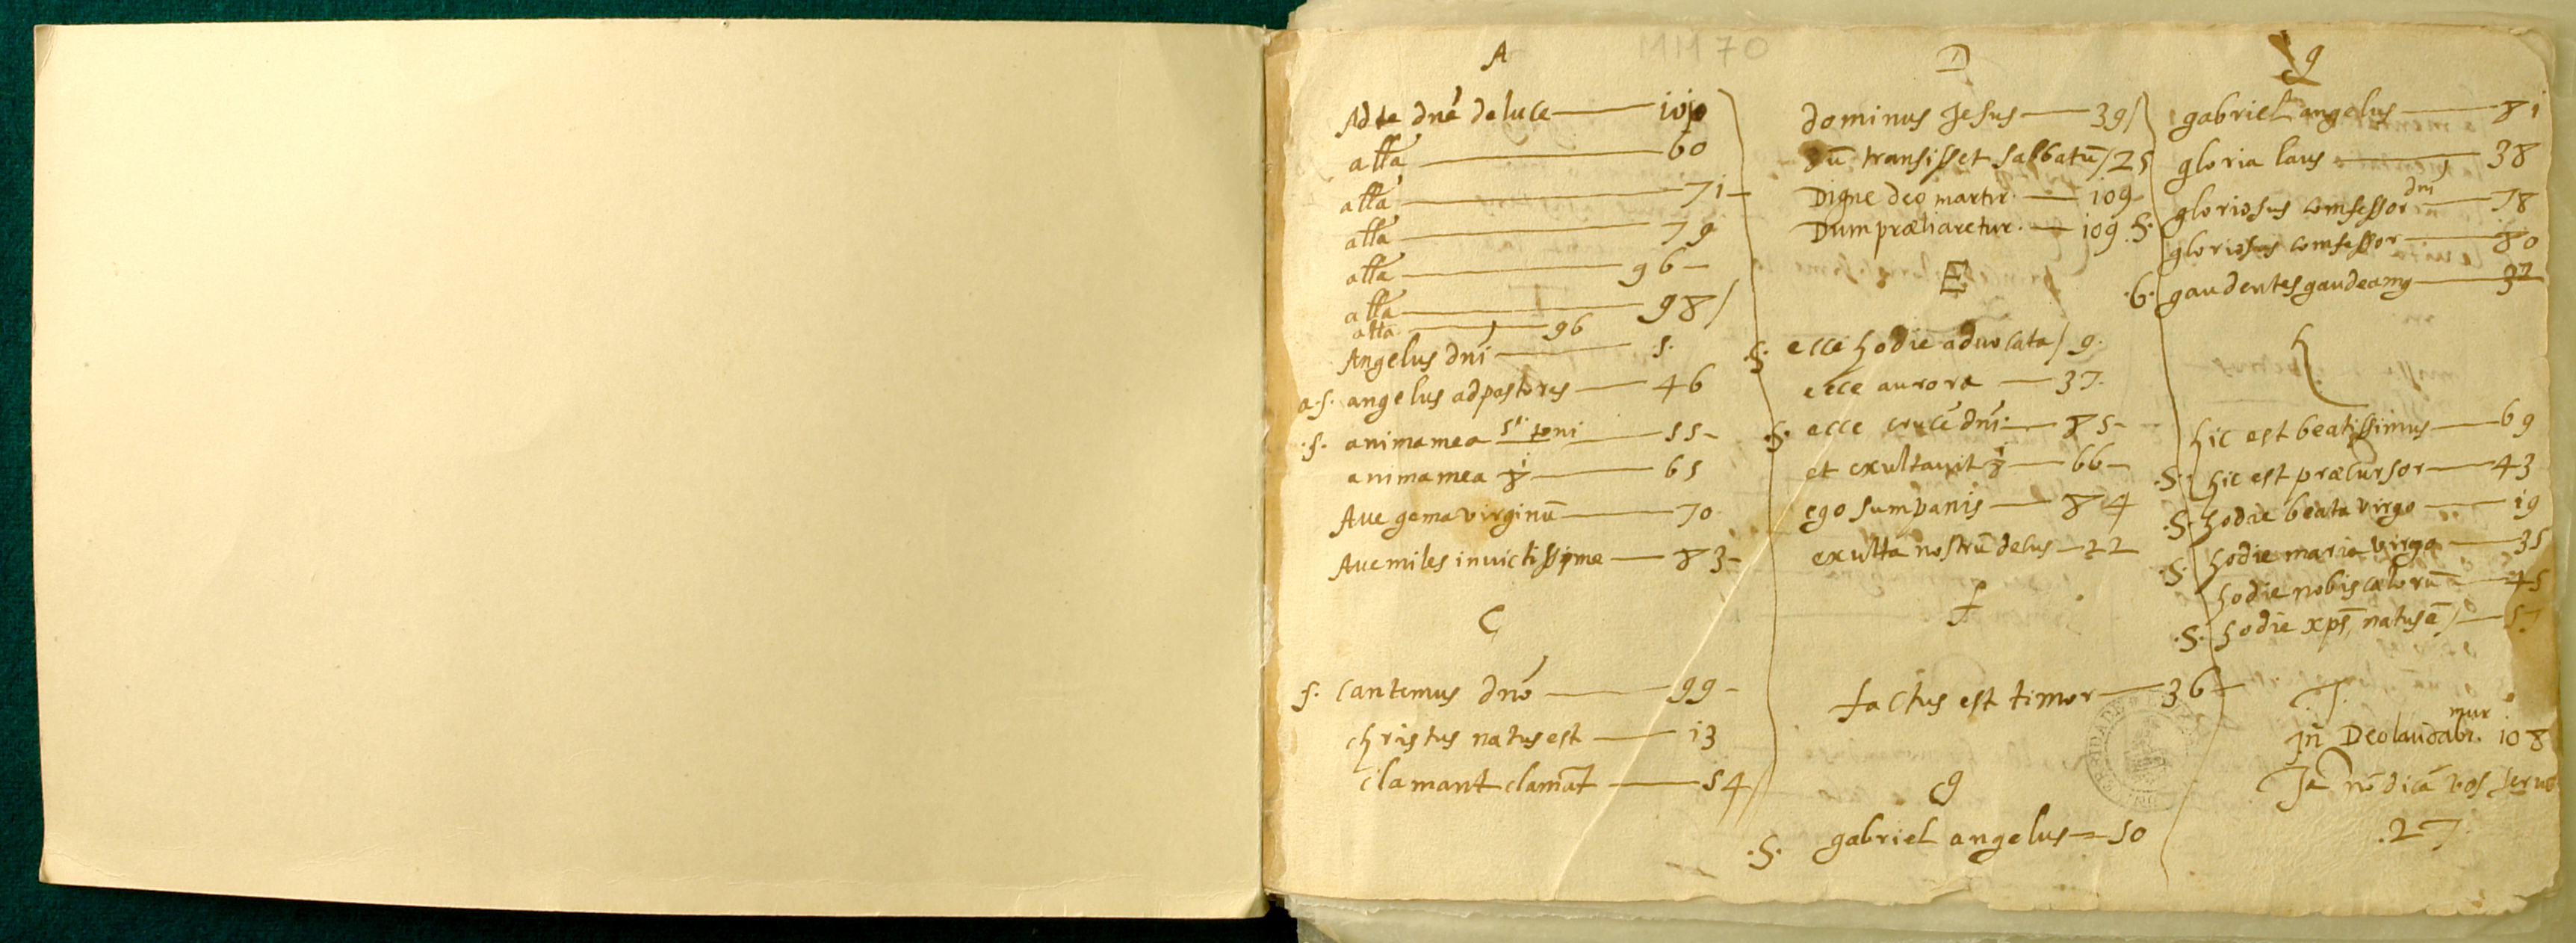 MM 70
A
Ad te dn̄e de luce — 101
alla — 60
alla — 71 —
alla — 79
alla — 96 —
alla — 98 /
alla — 96
Angelus dn̄i — 5.
a.5. angelus ad pastores — 46
.5. anima mea 5i toni — 55 —
anima mea 8i — 65
Aue gema virginū — 70
Aue miles invictissime — 83 —
C
5. Cantemus dn̄o — 99 —
christus natus est — 13
Clamant clamāt — 54
D
dominus Jesus — 39 /
Dū transisset sabbatū / 25
Digne deo martir. — 109 —
Dum præliaretur. — 109
E
.5. ecce hodie aduocata / 9.
ecce aurora — 37.
.5. ecce crucē dn̄i — 85 —
et exultauit 8i — 66 —
ego sum panis — 84
exulta nostrū delus — 22
f
factus est timor — 36 —
g
.5. gabriel angelus — 50
g
gabriel angelus — 81
gloria laus — 38
gloriosus comfessor dn̄i — 78
.5. gloriosus comfessor — 80
.6. gaudentes gaudeamꝰ — 37
h
hic est beatissimus — 69
.5. hic est præcursor — 43
.5. hodie beata virgo — 19
.5. hodie maria virgo — 35
hodie nobis cælorū — 45
.5. hodie xp̄s natus ē / — 57
J.
Jn̄ Deo laudabi.mur 108
Jā nō dicā vos seruos
.27.